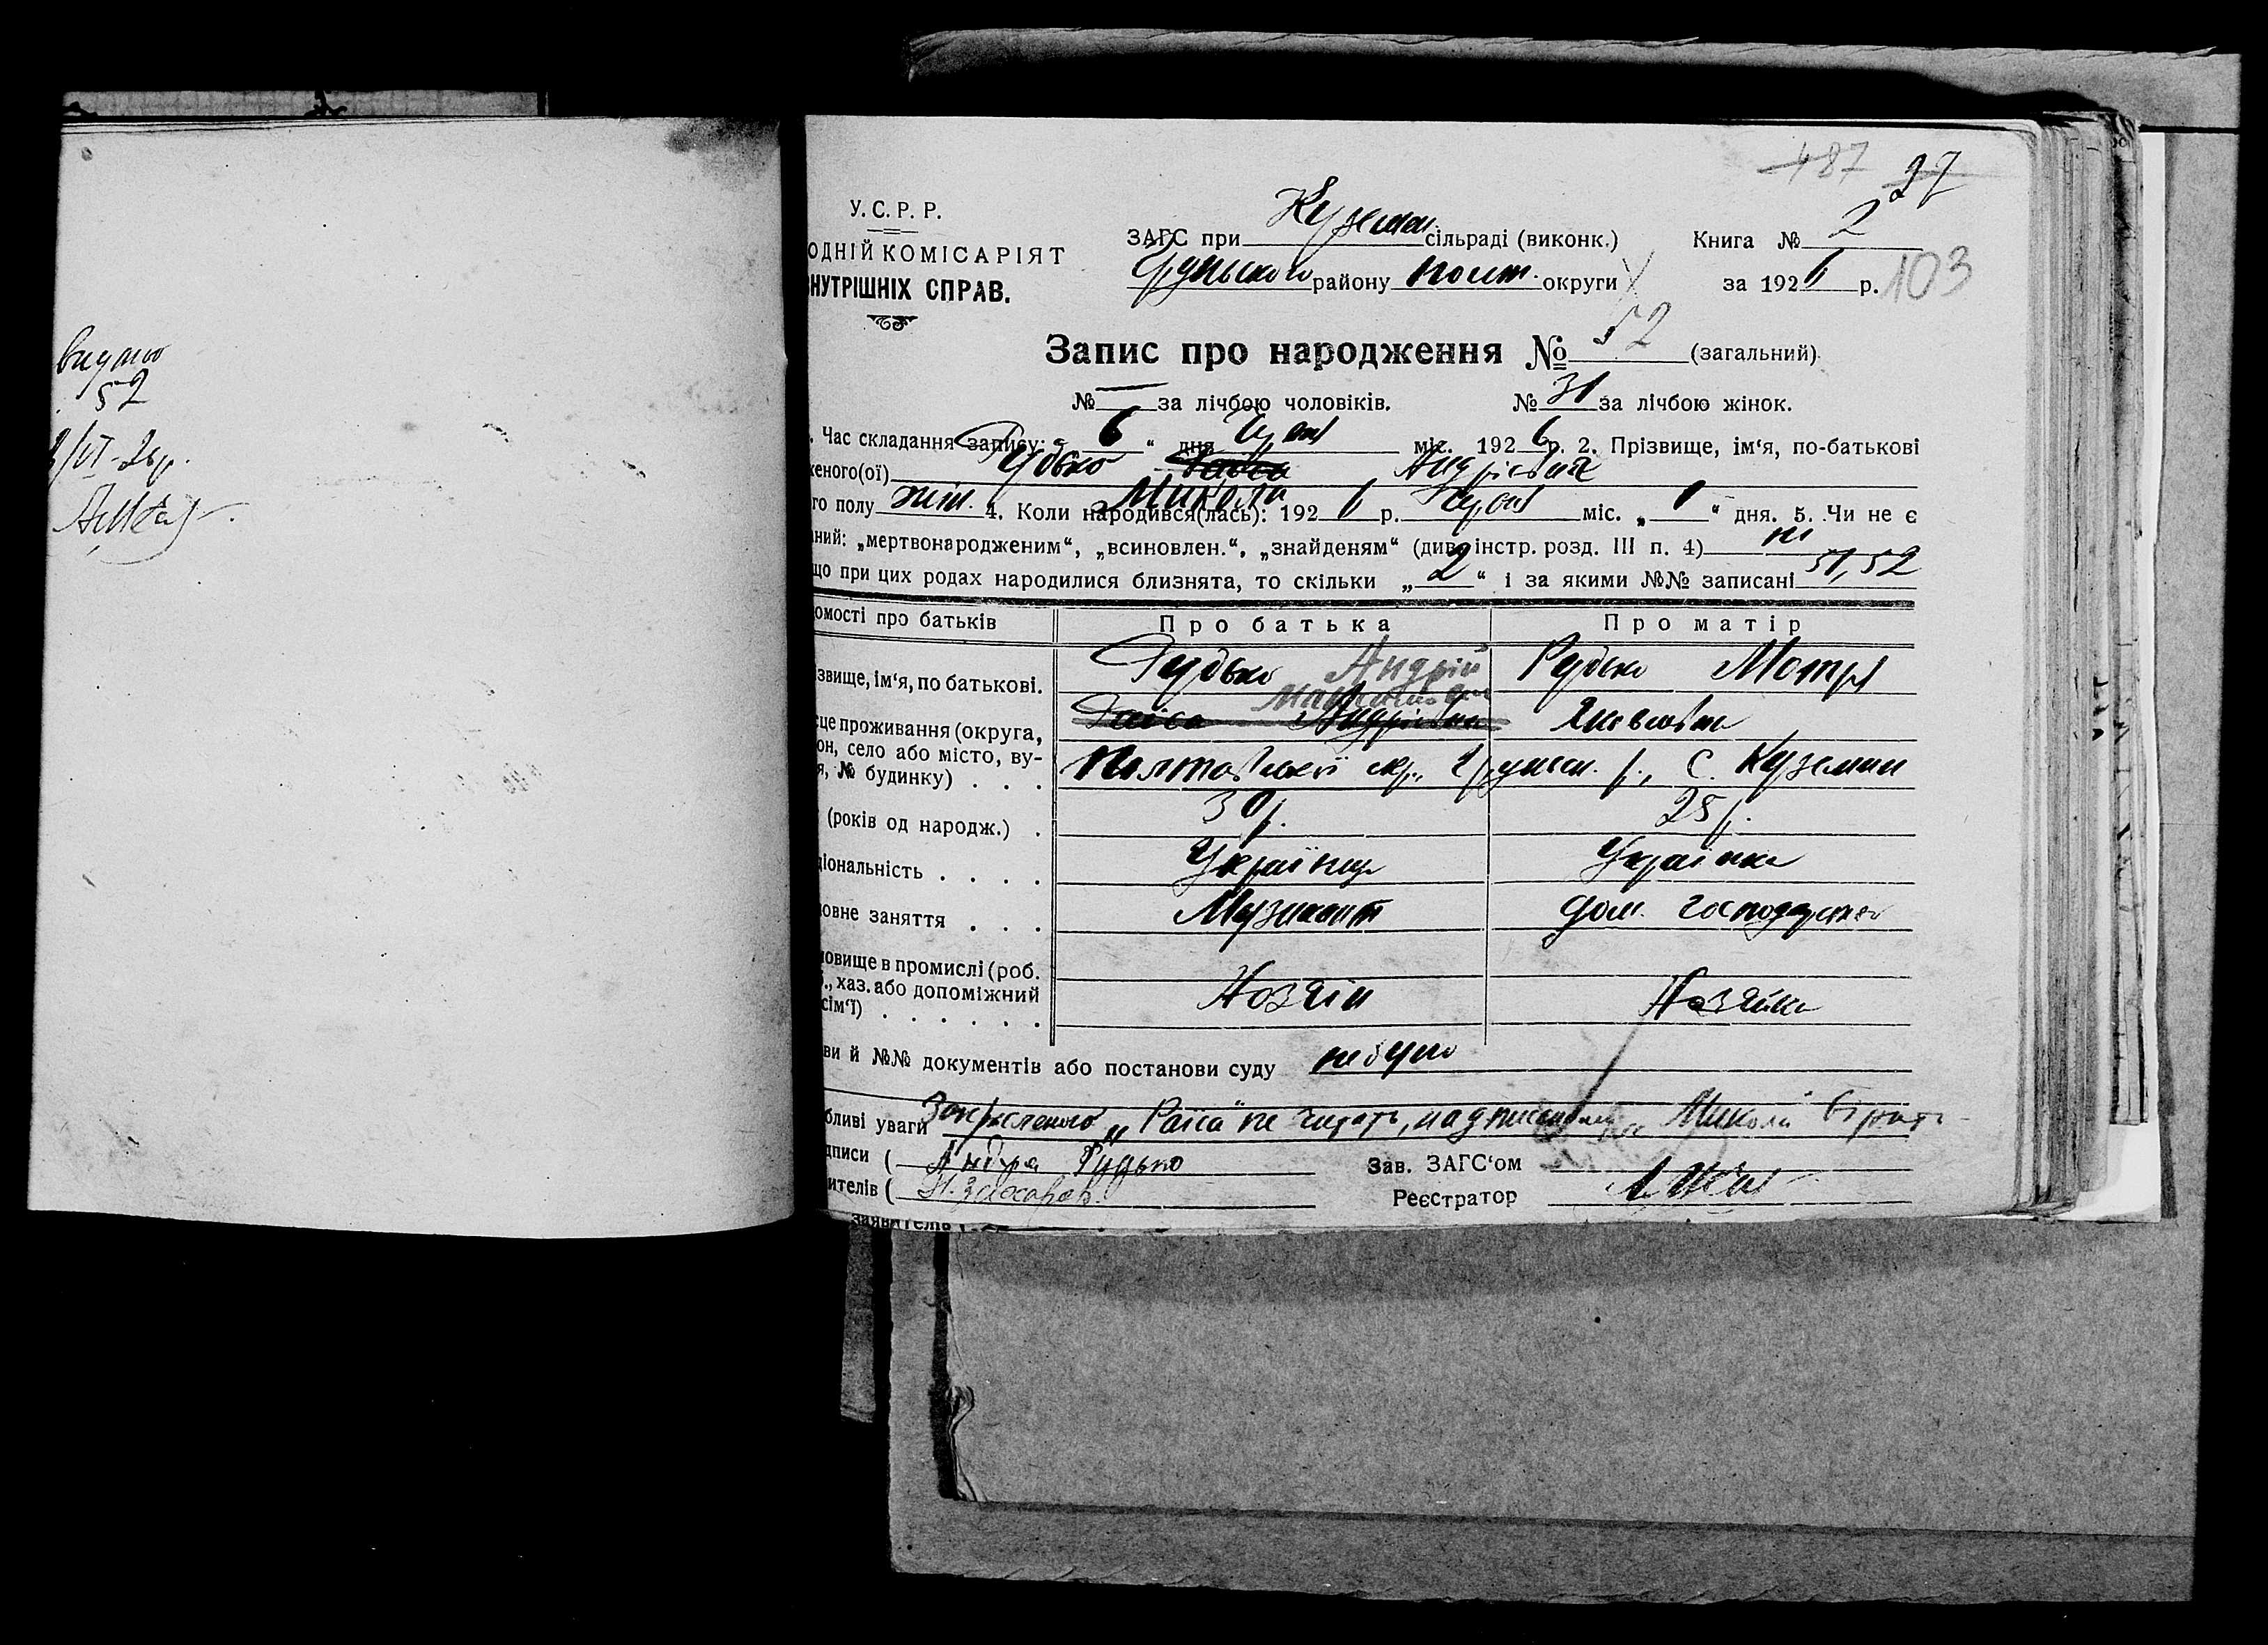 видано
52
VI-26р.
487 27
У. С. Р. Р.
ОДНІЙ КОМІСАРІЯТ
НУТРІШНІХ СПРАВ.
ЗАГС при Кузем. сільраді (виконк.)
Грунського району Полт. округи
Книга № 2
за 1926 р. 103
Запис про народження № 52 (загальний)
№ — за лічбою чоловіків. № 31 за лічбою жінок.
. Час складання запису: „ 6 “ дня Чрвн міс. 1926 р. 2. Прізвище, ім‘я, по-батькові
женого(ої) Рудько Раїса Андрієвич
Микола
го полу жін. 4. Коли народився(лась): 1926 р. Чрвн міс. „ 1 “ дня. 5. Чи не є
аний: „мертвонародженим“, „всиновлен.“, „знайденям“ (див. інстр. розд. III п. 4) ні
що при цих родах народилися близнята, то скільки „ 2 “ і за якими №№ записані 51, 52
омості про батьків Про батька Про матір
звище, ім‘я, по батькові. Рудько Андрій Рудько Мотря
Раїса Андрієвна Яковлевна
це проживання (округа,
он, село або місто, ву-
я, № будинку) . . . Полтавської окр., Грунськ. р., С. Куземин
(років од народж.) . 30 р. 25 р.
ціональність . . . . Українець Українка
овне заняття . . . Музикант дом. господарство
овище в промислі (роб.
., хаз. або допоміжний
сім‘ї) . . . . . . Хозяїн Хозяйка
ви й №№ документів або постанови суду не було
бливі уваги Закресленого „Раїса“ не читать, надписаному „Микола“ вірить
дписи ( Андрій Рудько Зав. ЗАГС‘ом
ителів ( Н. Захаров. Реєстратор
заявителів (